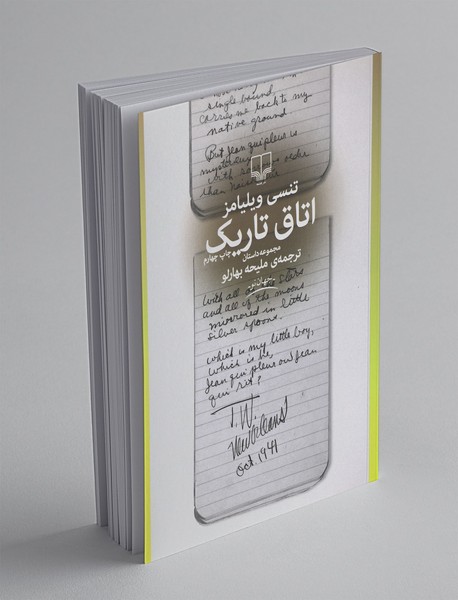 single bound
carries me back to my
native ground.
But Jean qui pleure is
mysterious
with so
than
تنسی ویلیامز
اتاق تاریک
مجموعه‌داستان چاپ چهارم
ترجمه‌ی ملیحه بهارلو
جهان‌نو
with all of the stars
and all of the moons
mirrored in little
silver spoons.
which is my little boy,
which is he,
Jean qui pleure ou Jean
qui rit?
T. W.
New Orleans
Oct. 1941